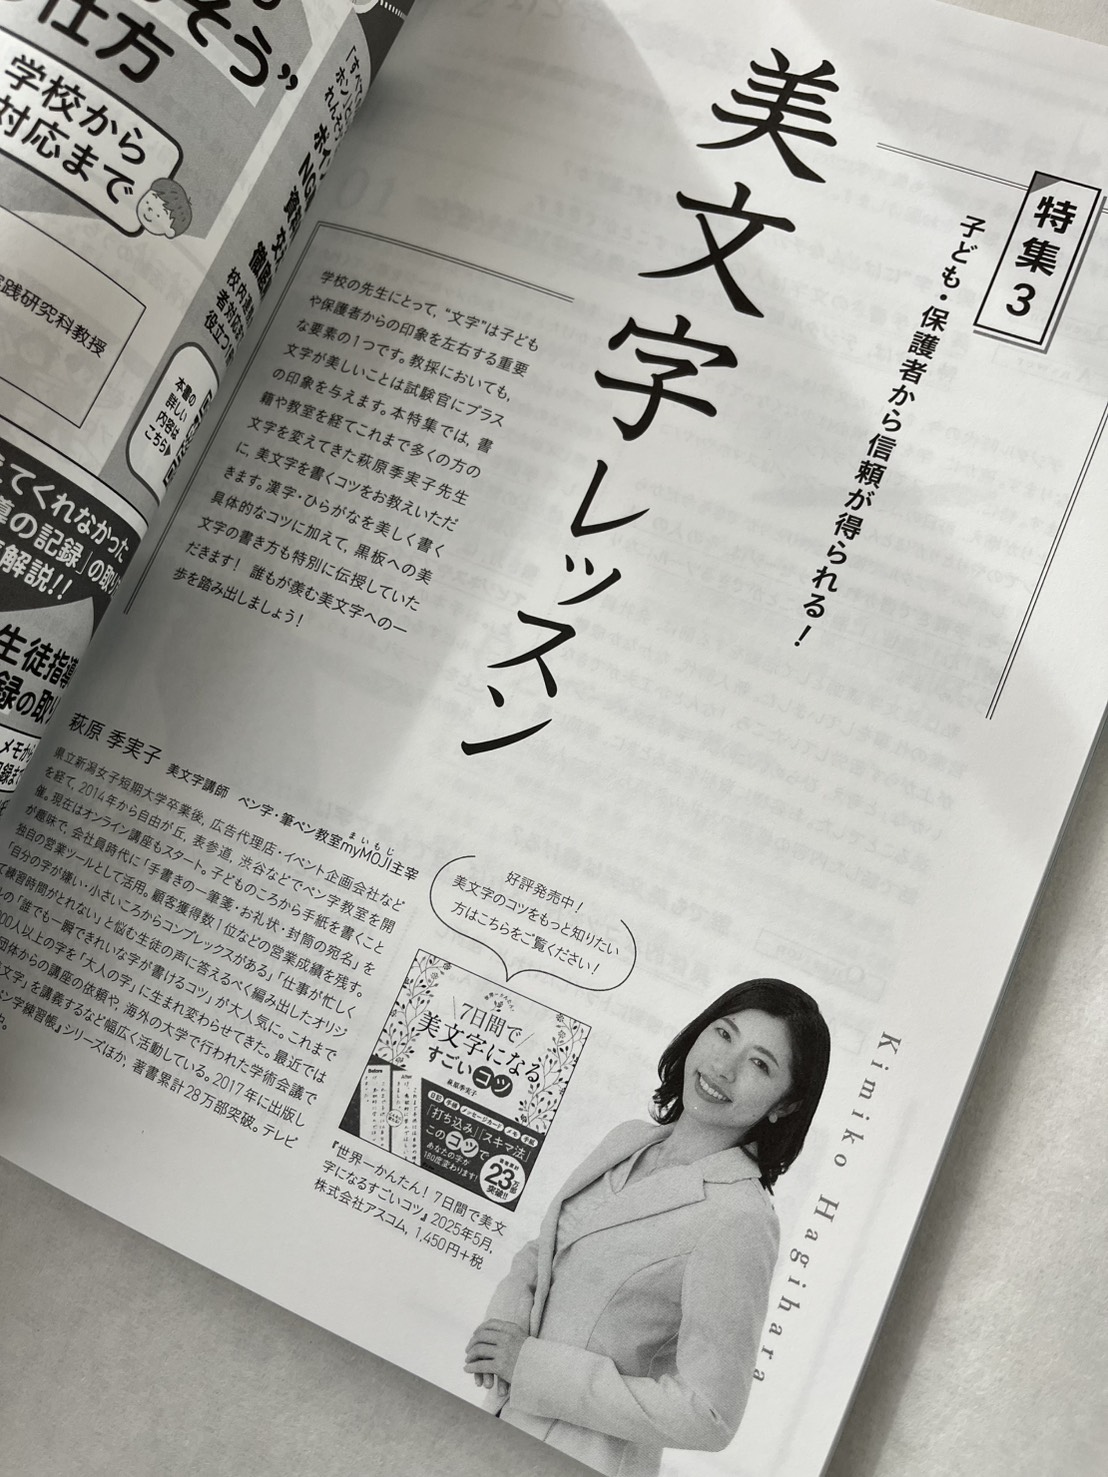 特集3
子ども・保護者から信頼が得られる！
美文字レッスン
学校の先生にとって，“文字”は子ども
や保護者からの印象を左右する重要
な要素の1つです。教採においても，
文字が美しいことは試験官にプラス
の印象を与えます。本特集では，書
籍や教室を経てこれまで多くの方の
文字を変えてきた萩原季実子先生
に，美文字を書くコツをお教えいただ
きます。漢字・ひらがなを美しく書く
具体的なコツに加えて，黒板への美
文字の書き方も特別に伝授していた
だきます！ 誰もが羨む美文字への一
歩を踏み出しましょう！
萩原 季実子 美文字講師 ペン字・筆ペン教室myMOJI主宰
まいもじ
県立新潟女子短期大学卒業後，広告代理店・イベント企画会社など
を経て，2014年から自由が丘，表参道，渋谷などでペン字教室を開
催。現在はオンライン講座もスタート。子どものころから手紙を書くこと
が趣味で，会社員時代に「手書きの一筆箋・お礼状・封筒の宛名」を
独自の営業ツールとして活用。顧客獲得数1位などの営業成績を残す。
「自分の字が嫌い・小さいころからコンプレックスがある」「仕事が忙しく
て練習時間がとれない」と悩む生徒の声に答えるべく編み出したオリジ
ルの「誰でも一瞬できれいな字が書けるコツ」が大人気に。これまで
00人以上の字を「大人の字」に生まれ変わらせてきた。最近では
団体からの講座の依頼や，海外の大学で行われた学術会議で
文字」を講義するなど幅広く活動している。2017年に出版し
ペン字練習帳』シリーズほか，著書累計28万部突破。テレビ
中。
好評発売中！
美文字のコツをもっと知りたい
方はこちらをご覧ください！
7日間で
美文字になる
すごいコツ
萩原季実子
Before
After
メッセージカード
メモ
「打ち込み」「スキマ法」
このコツで
あなたの字が
180度変わります！
23万部
突破!!
『世界一かんたん！ 7日間で美文
字になるすごいコツ』2025年5月，
株式会社アスコム，1,450円＋税
Kimiko Hagihara
そう”
仕方
学校から
対応まで
践研究科教授
NG
校内連携
役立つ
本書の
詳しい
内容は
こちら
えてくれなかった
導の記録」の取り
解説!!
生徒指導
録の取り
メモか